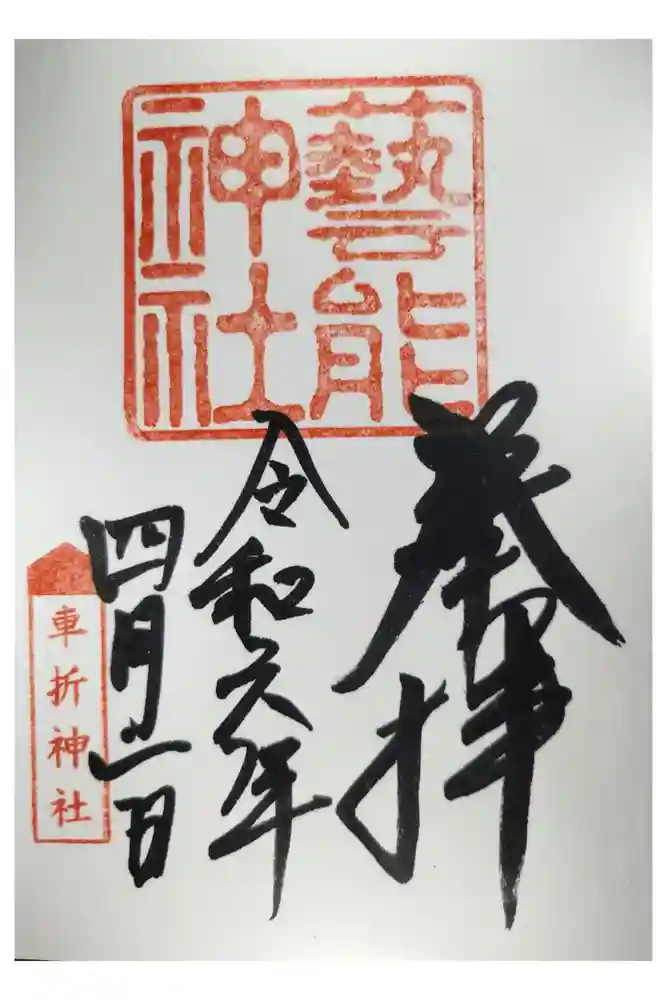 藝能
神社
奉拝
令和元年
四月二日
車折神社